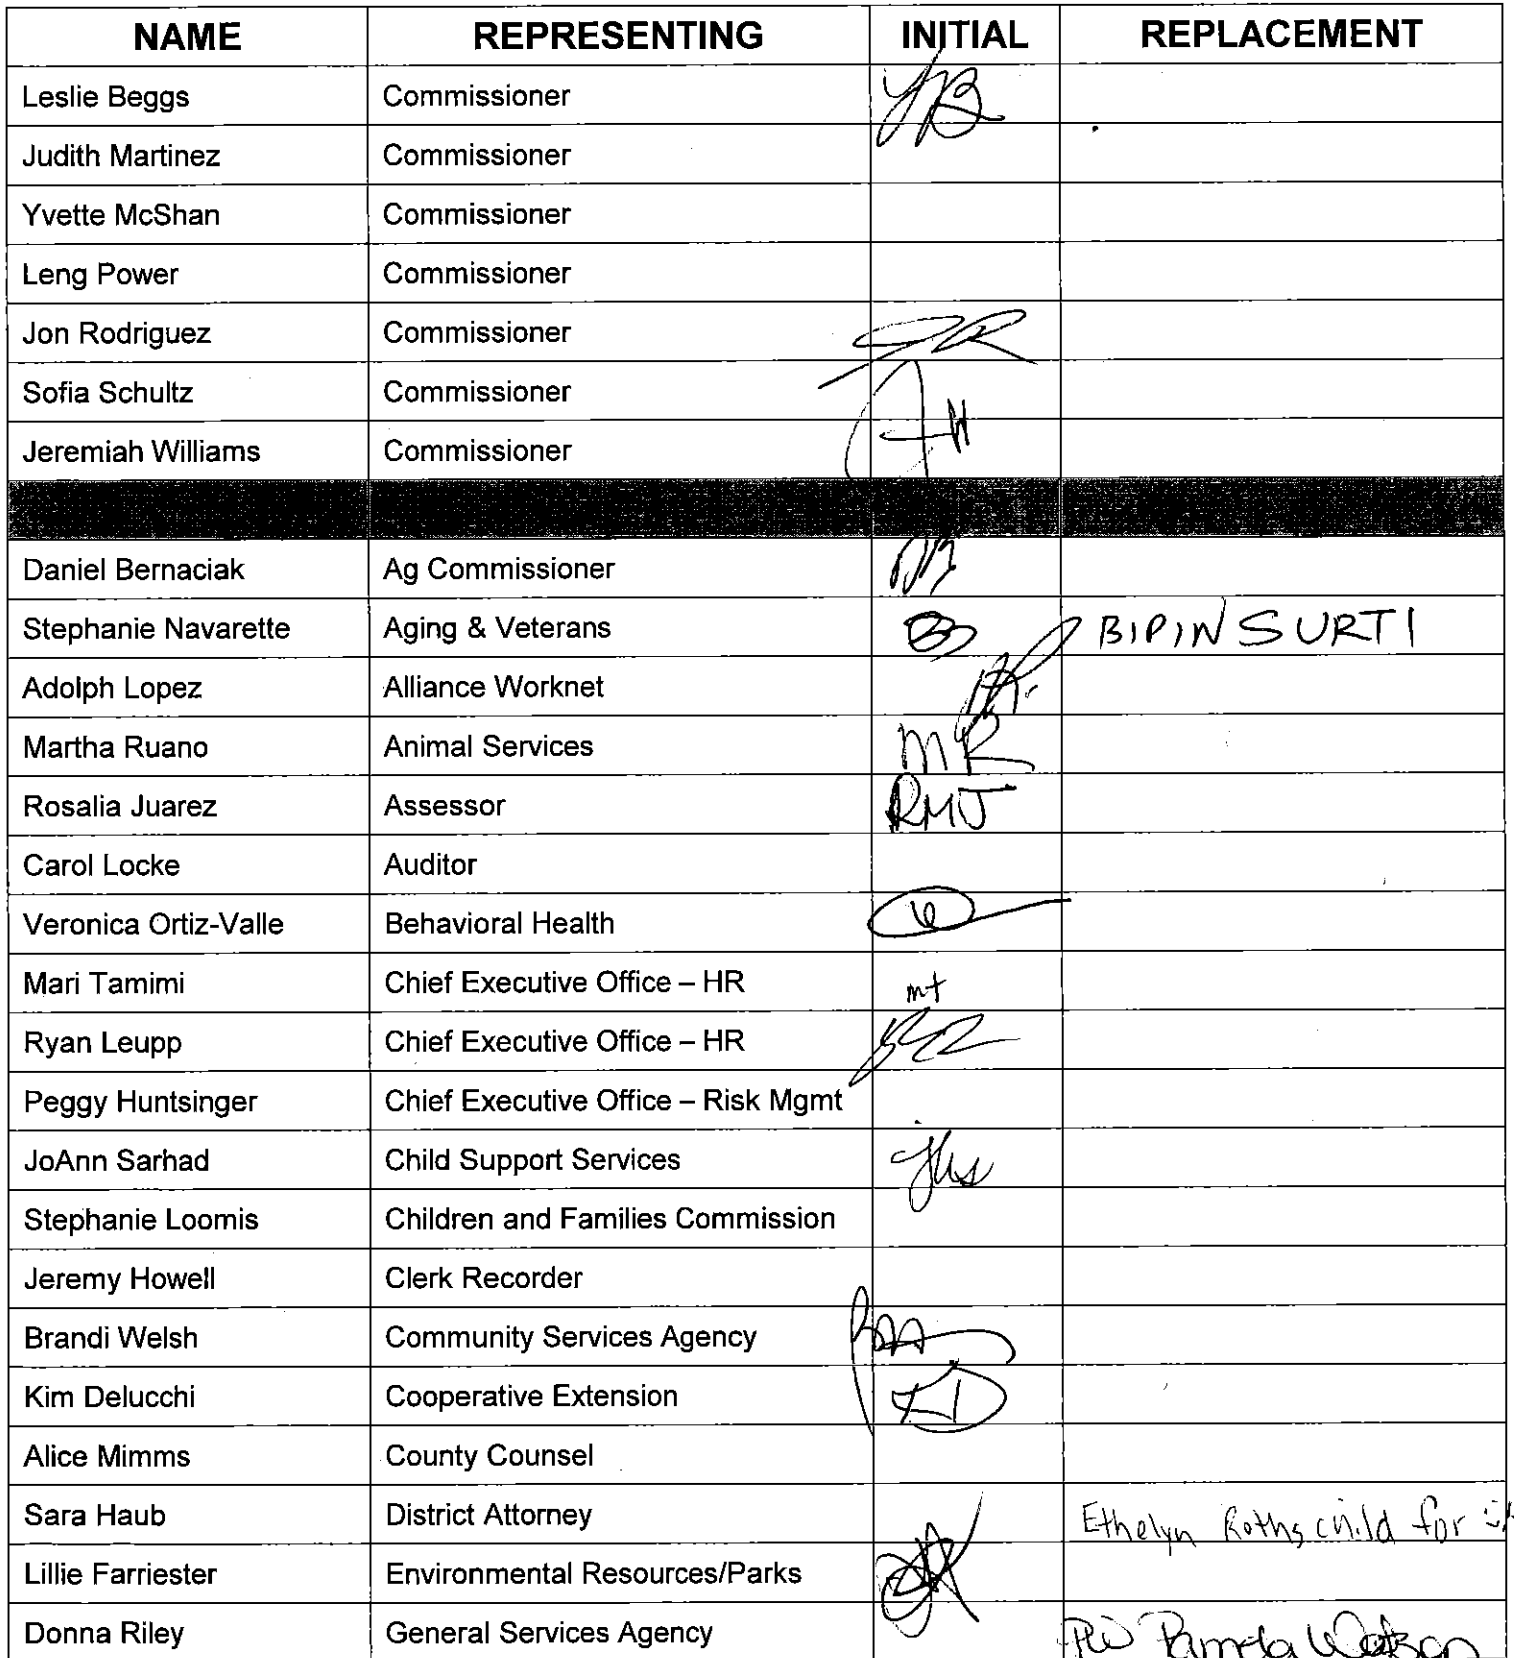 NAME REPRESENTING INITIAL REPLACEMENT
Leslie Beggs Commissioner
Judith Martinez Commissioner
Yvette McShan Commissioner
Leng Power Commissioner
Jon Rodriguez Commissioner JR
Sofia Schultz Commissioner
Jeremiah Williams Commissioner
Daniel Bernaciak Ag Commissioner DB
Stephanie Navarette Aging & Veterans BIPIN SURTI
Adolph Lopez Alliance Worknet
Martha Ruano Animal Services MR
Rosalia Juarez Assessor RMJ
Carol Locke Auditor
Veronica Ortiz-Valle Behavioral Health
Mari Tamimi Chief Executive Office – HR mt
Ryan Leupp Chief Executive Office – HR
Peggy Huntsinger Chief Executive Office – Risk Mgmt
JoAnn Sarhad Child Support Services jhs
Stephanie Loomis Children and Families Commission
Jeremy Howell Clerk Recorder
Brandi Welsh Community Services Agency
Kim Delucchi Cooperative Extension KD
Alice Mimms County Counsel
Sara Haub District Attorney Ethelyn Rothschild for
Lillie Farriester Environmental Resources/Parks
Donna Riley General Services Agency PW Pamela Watson